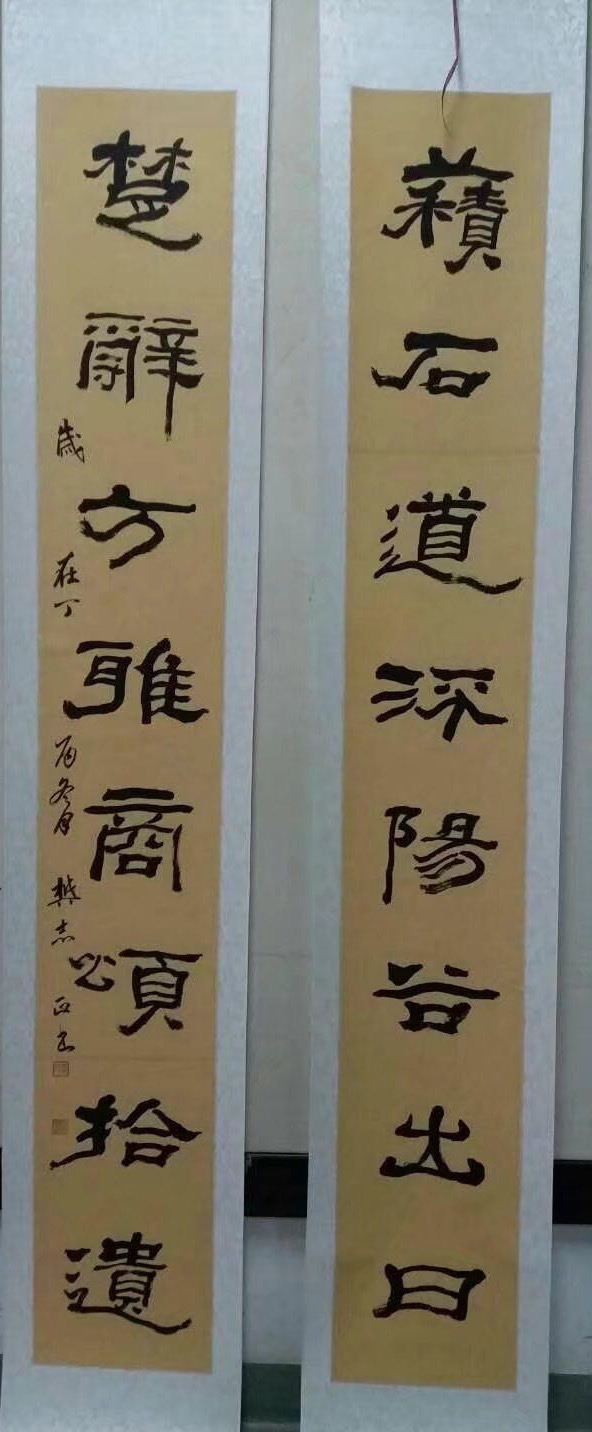 𧂐石道深陽谷出日
楚辭方雅商頌拾遺
歲在丁酉冬月樊志正书